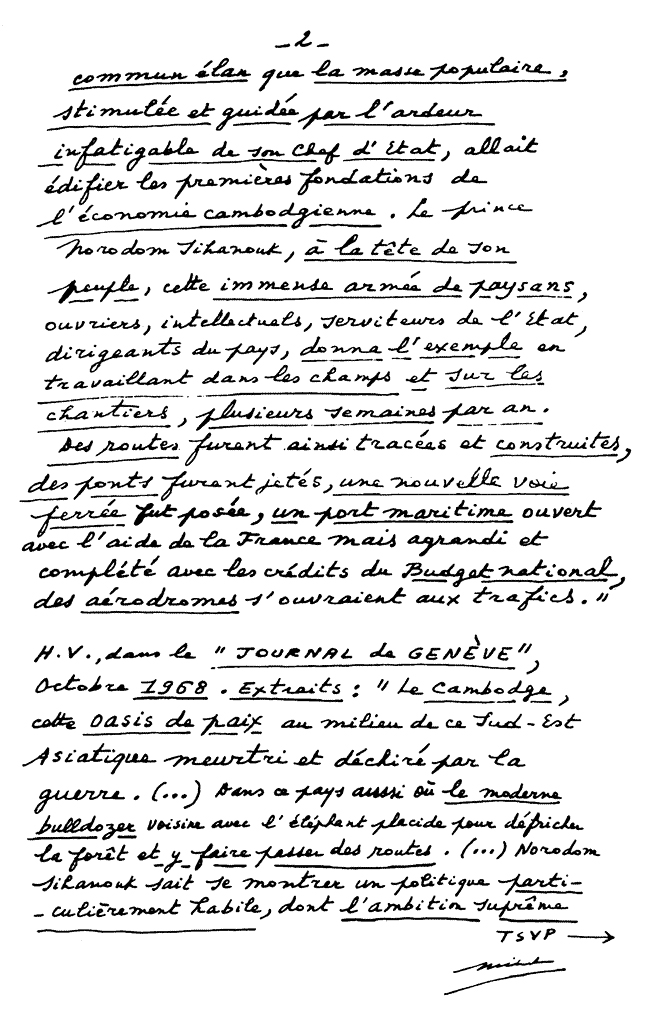 - 2 -
commun élan que la masse populaire,
stimulée et guidée par l'ardeur
infatigable de son Chef d'Etat, allait
édifier les premières fondations de
l'économie cambodgienne. Le prince
Norodom Sihanouk, à la tête de son
peuple, cette immense armée de paysans,
ouvriers, intellectuels, serviteurs de l'Etat,
dirigeants du pays, donna l'exemple en
travaillant dans les champs et sur les
chantiers, plusieurs semaines par an.
Des routes furent ainsi tracées et construites,
des ponts furent jetés, une nouvelle voie
ferrée fut posée, un port maritime ouvert
avec l'aide de la France mais agrandi et
complété avec les crédits du Budget national,
des aérodromes s'ouvraient aux trafics."
H.V., dans le "JOURNAL de GENÈVE",
Octobre 1968. Extraits : "Le Cambodge,
cette oasis de paix au milieu de ce Sud-Est
Asiatique meurtri et déchiré par la
guerre. (...) Dans ce pays aussi où le moderne
bulldozer voisine avec l'éléphant placide pour défricher
la forêt et y faire passer des routes. (...) Norodom
Sihanouk sait se montrer un politique parti-
-culièrement habile, dont l'ambition suprême
TSVP →